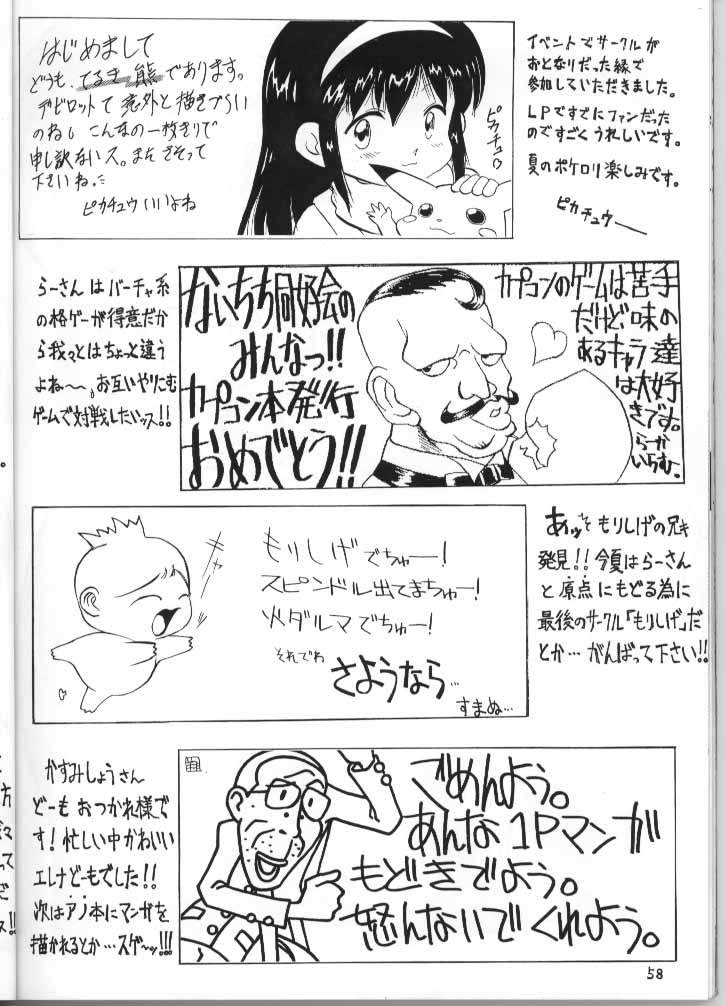 はじめまして
どうも、てるき熊であります。
デビロットて意外と描きづらい
のねし こんなの一枚きりで
申し訳ないス。また さそって
下さいね。
ピカチュウいいよね
ピカチュウ
イベントでサークルが
おとなりだった縁で
参加していただきました。
LPですでにファンだった
のですごくうれしいです。
夏のポケロリ楽しみです。
ピカチュウー
らーさんはバーチャ系
の格ゲーが得意だか
ら我々とはちょっと違う
よね〜。お互いやりこむ
ゲームで対戦したいッス!!
ないちち同好会の
みんなっ!!
カプコン本発行
おめでとう!!
カプコンのゲームは苦手
だけど味の
あるキャラ達
は大好
きです。
らーか
いらむ。
もりしげでちゅー!
スピンドル出てまちゅー!
火ダルマでちゅー!
それでわ
さようなら…
すまぬ…
あッそ もりしげの兄キ
発見!! 今夏はらーさん
と原点にもどる為に
最後のサークル「もりしげ」だ
とか…がんばって下さい!!
かすみしょうさん
どーもおつかれ様で
す!忙しい中かわいい
エレナどもでした!!
次はアノ本にマンガを
描かれるとか…スゲ〜ッ!!!
ごめんよう。
あんな1Pマンガ
もどきでよう。
怒んないでくれよう。
58